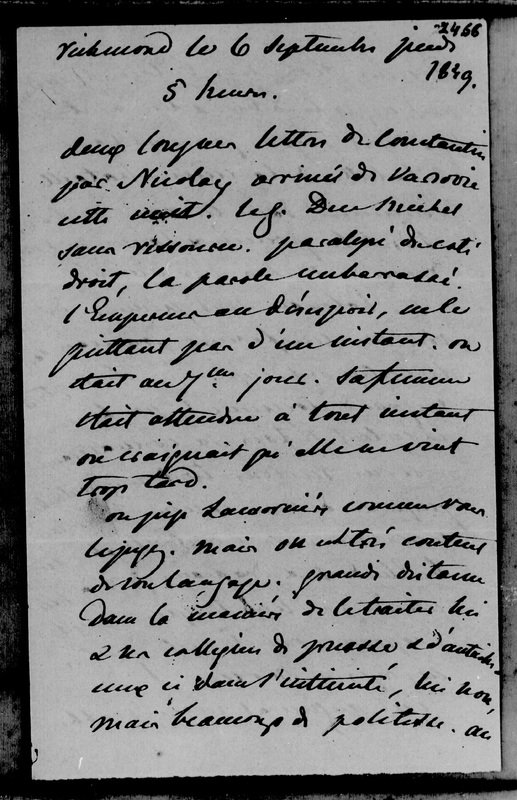 2466
Richmond le 6 Septembre jeudi
1849.
5 heures.
deux longues lettres de Constantin
par Nicolay arrivées de Varsovie
cette nuit. le g. Duc Michel
sans ressource. paralysé du coté
droit, la parole embarassée.
l'Empereur au désespoir, ne le
quittant pas d'un instant. on
était au 7ème jour. sa femme
était attendue à tout instant
on craignait qu'elle ne vint
trop tard.
on juge Lamoricière comme vous
le jugez. mais on est très content
de son langage. grande distance
dans la manière de le traiter lui
& ses collègues de Prusse & d'Autriche
eux ici dans l'intimité, lui non,
mais beaucoup de politesse. au